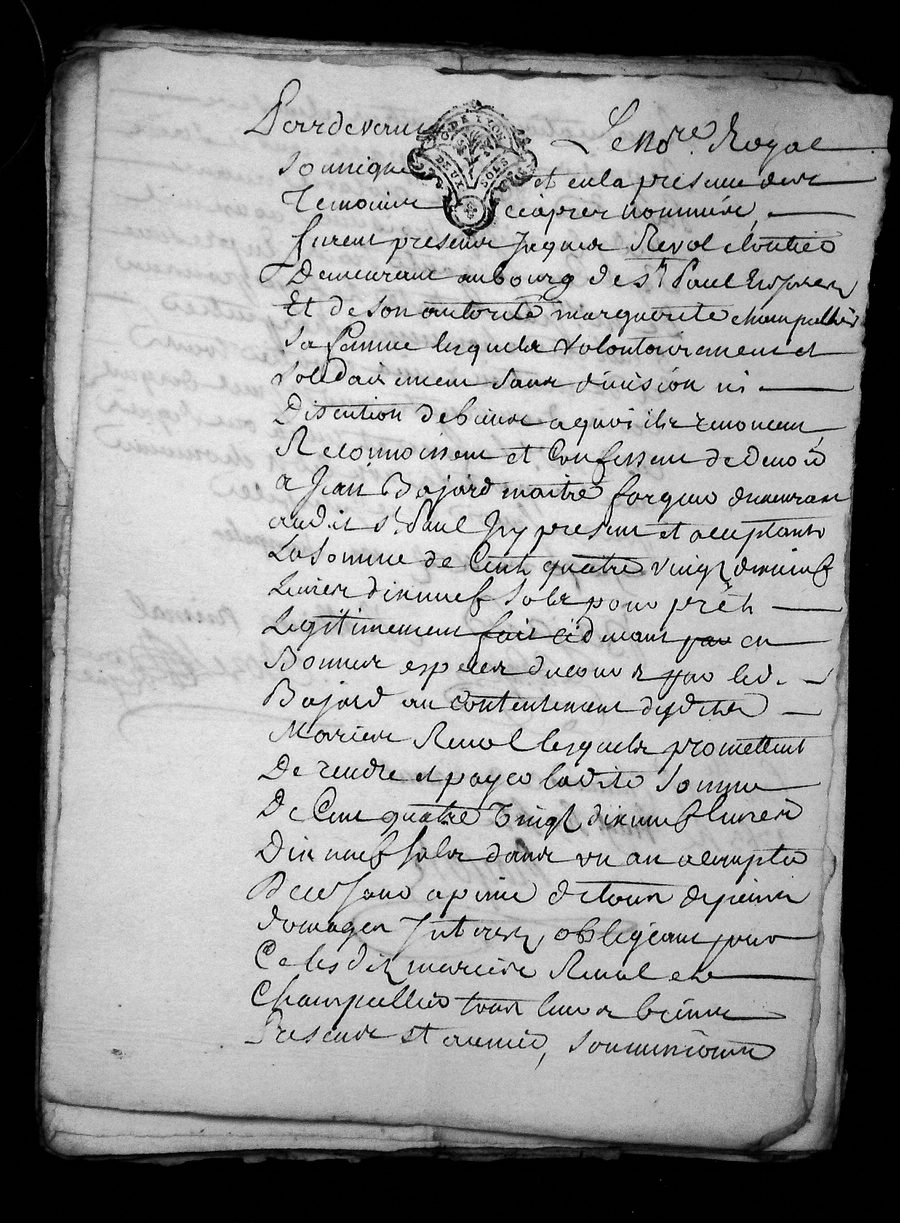 Pardevant Le No.re Royal
Soussigné et en la presence des
Temoins cy apres nommés,
furent presens Jaques Revol cloutier
Demeurant au bourg de St. Paul
Et de son autorité marguerite champallier
Sa femme lesquels volontairement et
Solidairement sans division ni
Discution de biens a quoi ils renoncent
Reconnoissent et Confessent de devoir
a Jean Bajard maitre forgeur demeurant
audit St. Paul Icy present et acceptant
La somme de Cent quatre vingt dix neuf
Livres dix neuf sols pour prêt
Legitimement fait cidevant en
Bonnes especes du cours par led.
Bajard au contentement desdits
Mariers Revol lesquels promettent
De rendre et payer ladite Somme
De Cent quatre vingt dix neuf livres
Dix neuf sols dans un an a compter
De ce jour a peine de tous depens
domages Interets, obligeant pour
Ce lesdits mariers Revol et
Champallier tous leurs biens
Presens et avenir, Soumissions
G. DE LYON
DEUX SOLS